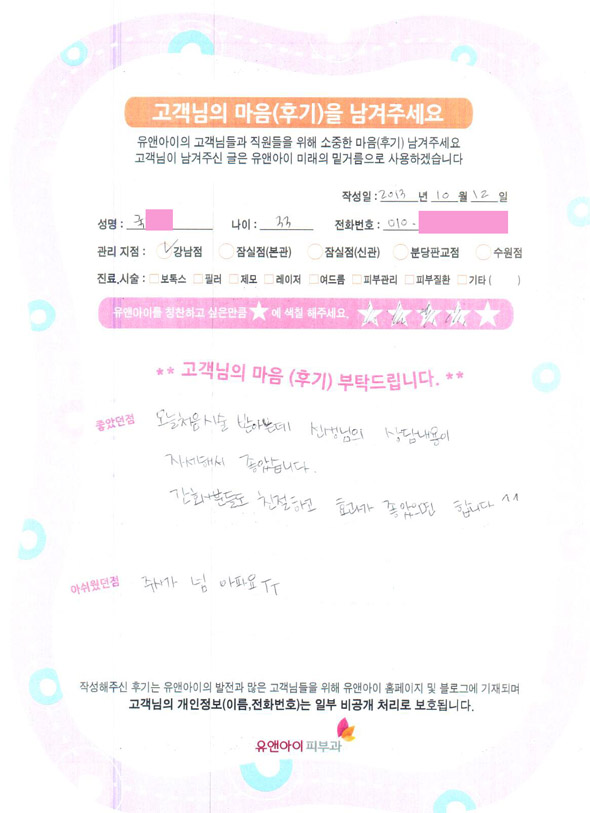 고객님의 마음(후기)을 남겨주세요
유앤아이의 고객님들과 직원들을 위해 소중한 마음(후기) 남겨주세요
고객님이 남겨주신 글은 유앤아이 미래의 밑거름으로 사용하겠습니다
작성일 : 2013 년 10 월 12 일
성명 : 나이 : 33 전화번호 : 010-
관리 지점 : 강남점 잠실점(본관) 잠실점(신관) 분당판교점 수원점
진료,시술 : 보톡스 필러 제모 레이저 여드름 피부관리 피부질환 기타 ( )
유앤아이를 칭찬하고 싶은만큼 ★에 색칠 해주세요. ★★★★★
** 고객님의 마음 (후기) 부탁드립니다. **
좋았던점 오늘처음시술 받아는데 선생님의 상담내용이
자세해서 좋았습니다.
간호사분들도 친절하고 효과가 좋았으면 합니다 ^^
아쉬웠던점 주사가 넘 아파요 ㅜㅜ
작성해주신 후기는 유앤아이의 발전과 많은 고객님들을 위해 유앤아이 홈페이지 및 블로그에 기재되며
고객님의 개인정보(이름,전화번호)는 일부 비공개 처리로 보호됩니다.
유앤아이피부과